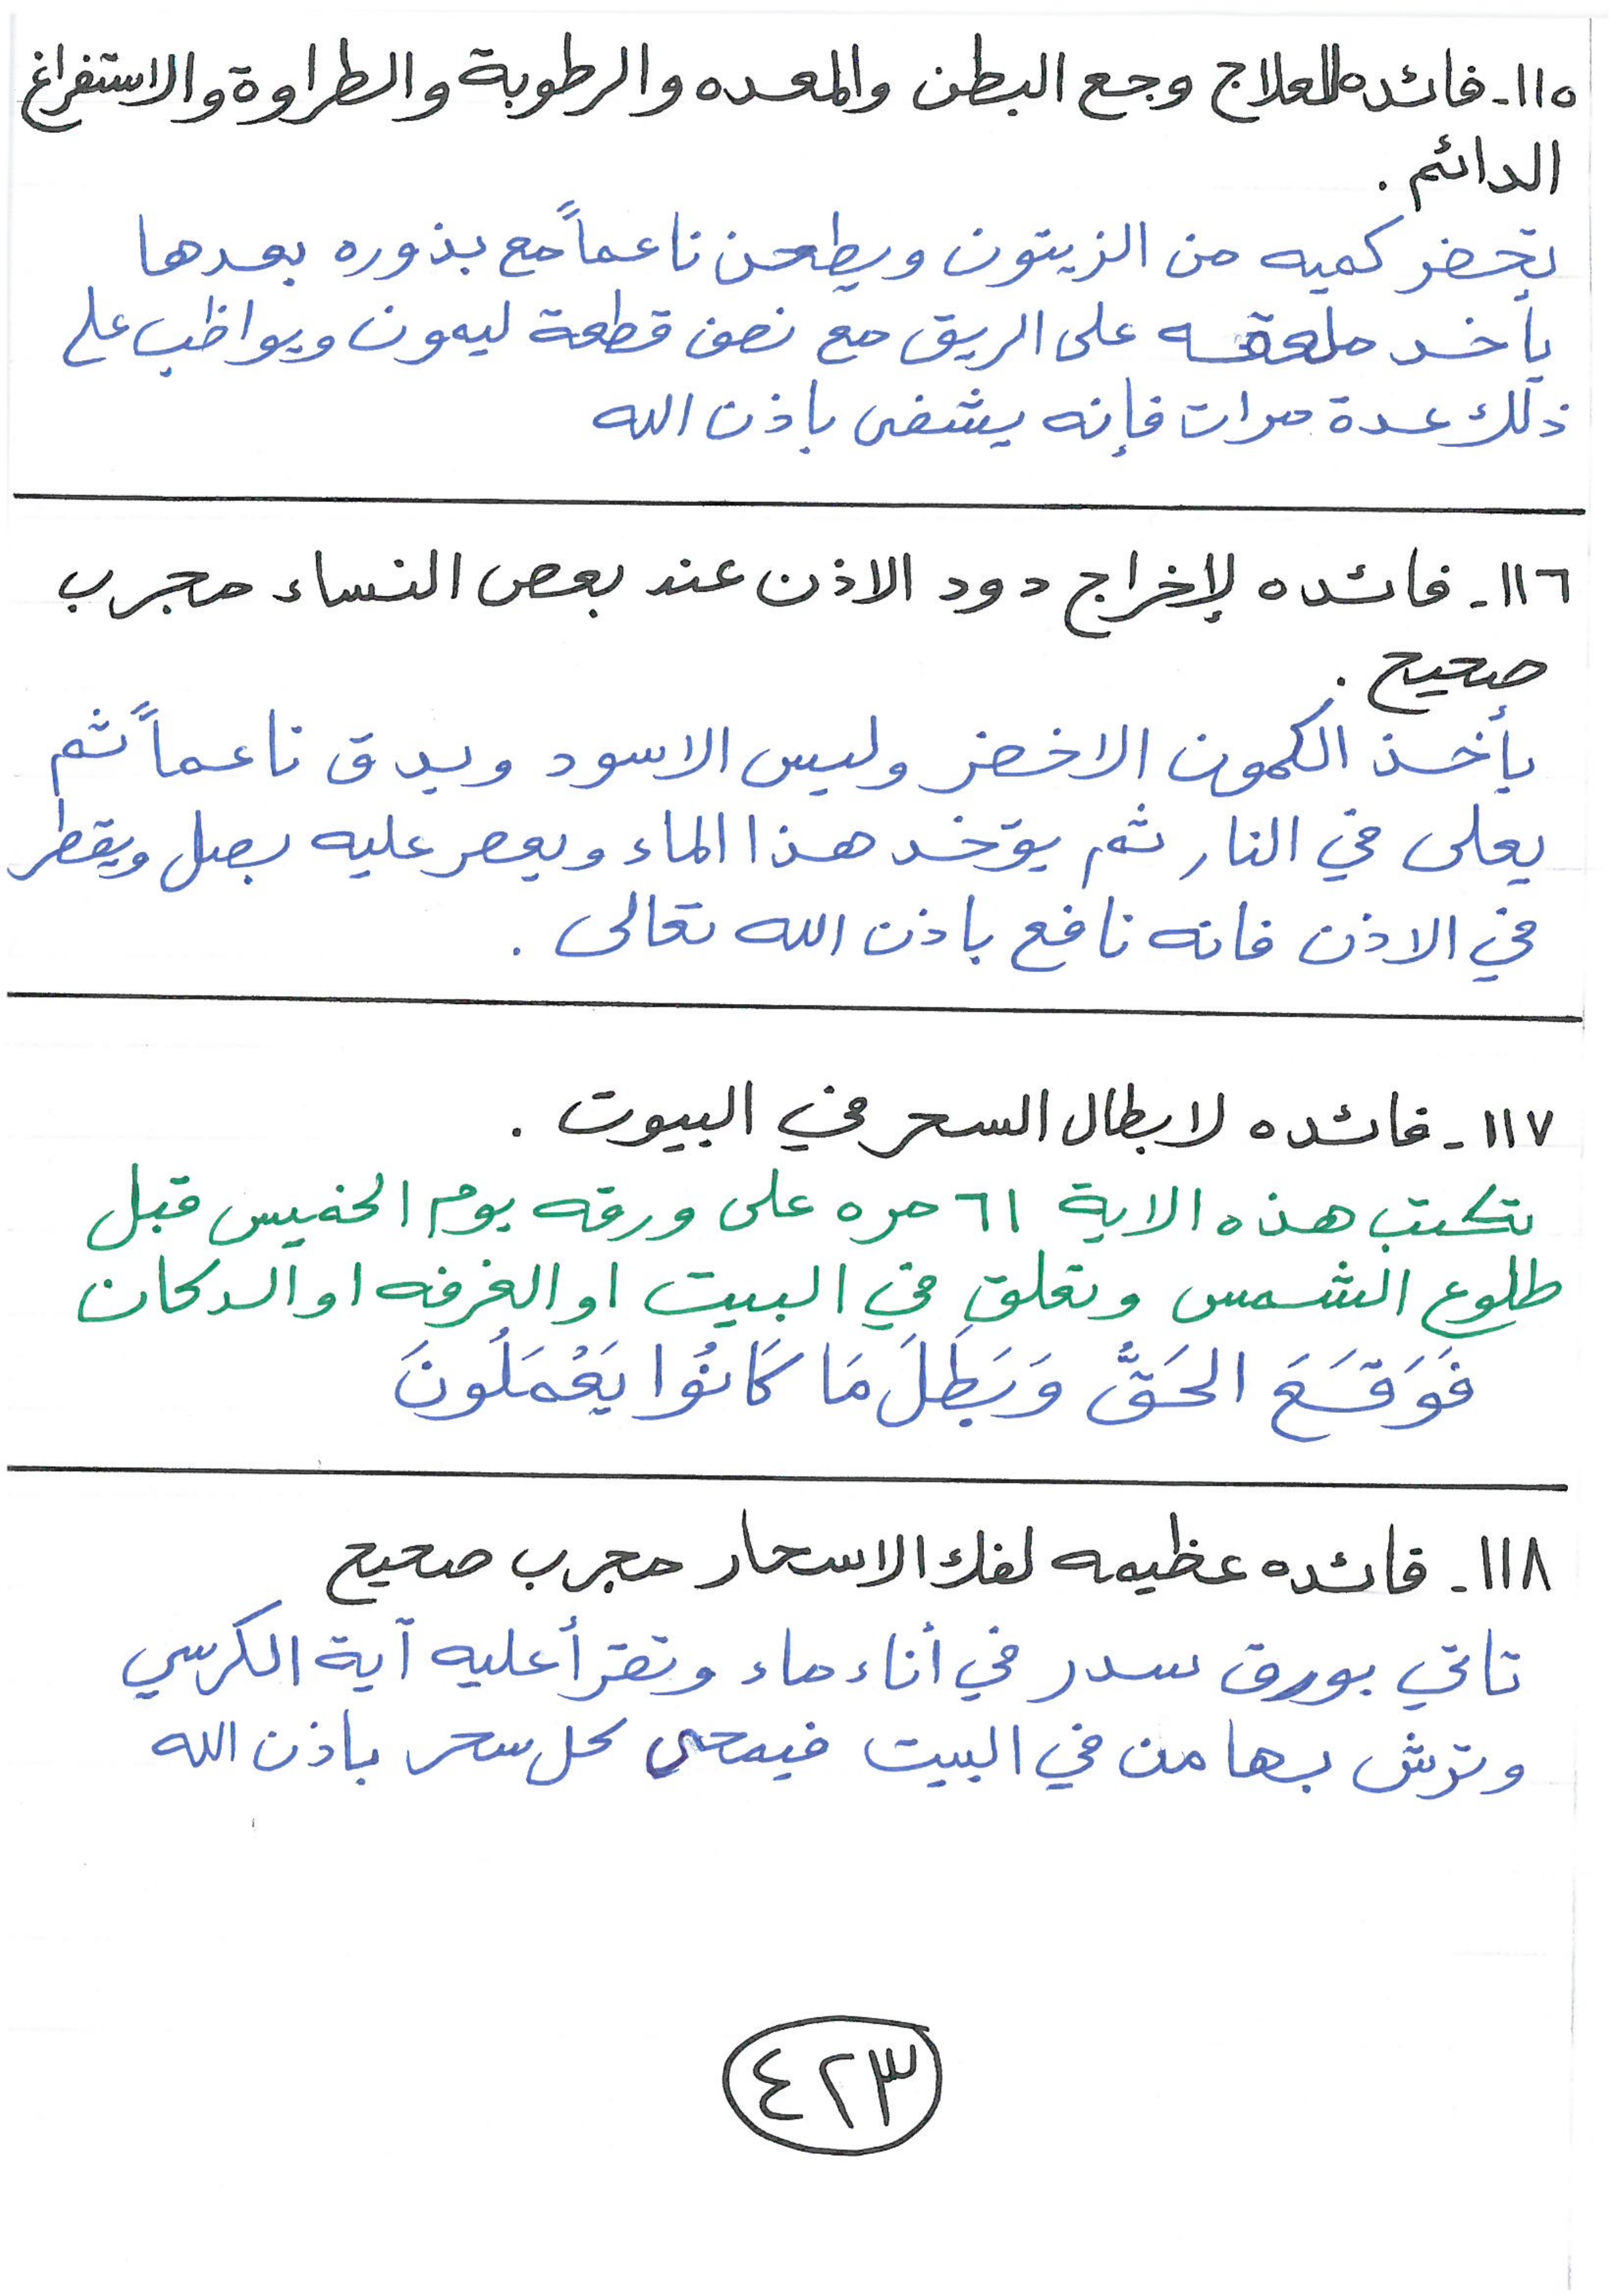 ١١٥- فائده لعلاج وجع البطن والمعده والرطوبة والطراوة والاستفراغ
الدائم .
تحضر كميه من الزيتون ويطحن ناعماً مع بذوره بعدها
يأخد ملعقه على الريق مع نصف قطعة ليمون ويواظب على
ذلك عدة مرات فإنه يشفى باذن الله
١١٦- فائده لإخراج دود الاذن عند بعض النساء مجرب
صحيح .
يأخذ الكمون الاخضر وليس الاسود ويدق ناعماً ثم
يعلى في النار ثم يؤخد هذا الماء ويعصر عليه بصل ويقطر
في الاذن فانه نافع باذن الله تعالى .
١١٧- فائده لابطال السحر في البيوت .
تكتب هذه الاية ٦١ مره على ورقه يوم الخميس قبل
طلوع الشمس وتعلق في البيت او الغرفه او الدكان
فَوَقَعَ الحَقُّ وَبَطَلَ مَا كَانُوا يَعْمَلُونَ
١١٨- فائده عظيمه لفك الاسحار مجرب صحيح
تاتي بورق سدر في أناء ماء وتقرأ عليه آية الكرسي
وترش بها من في البيت فيمحى كل سحر باذن الله
٤٢٣